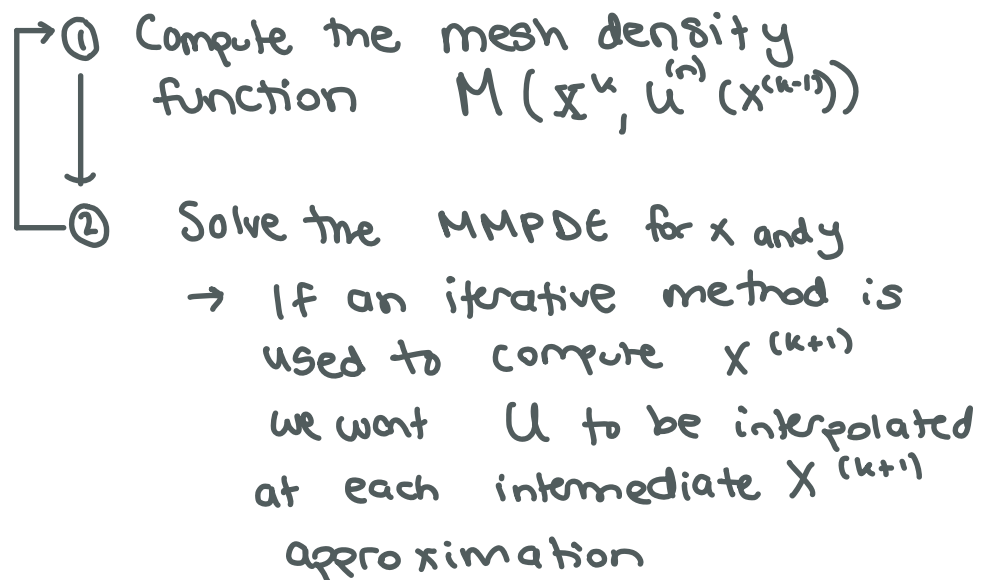 ① Compute the mesh density
function M(X^k, U^(n)(X^(k-1)))
② Solve the MMPDE for x and y
→ If an iterative method is
used to compute X^(k+1)
we want U to be interpolated
at each intermediate X^(k+1)
approximation